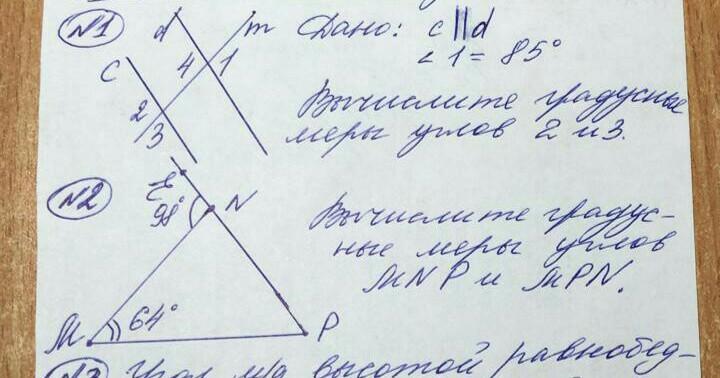 №1
d
m
Дано: c || d
∠1 = 85°
c
4
1
2
3
Вычислите градусные
меры углов 2 и 3.
№2
E
98°
N
M
64°
P
Вычислите градус-
ные меры углов
MNP и MPN.
№3 Угол м/д высотой равнобед-